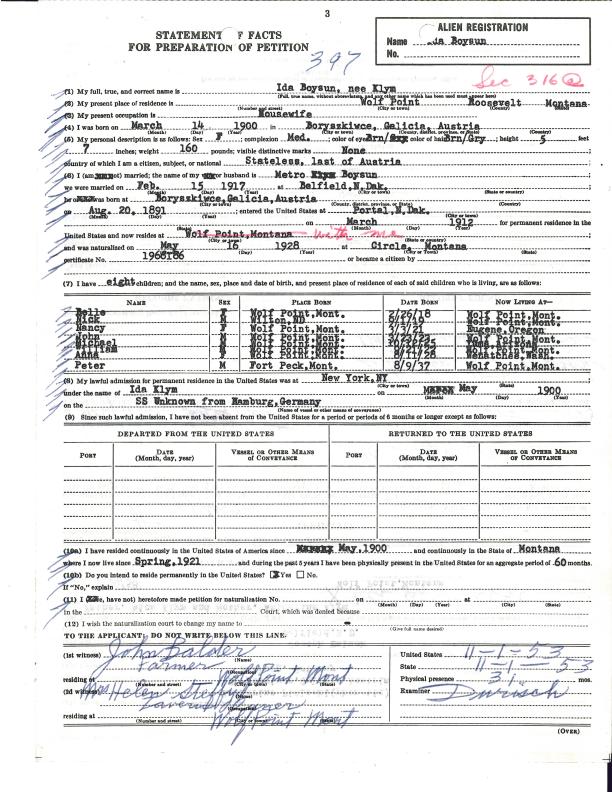 3
STATEMENT F FACTS
FOR PREPARATION OF PETITION
397
ALIEN REGISTRATION
Name da Boysun
No.
Sec 316(a)
(1) My full, true, and correct name is Ida Boysun, nee Klym
(Full, true name, without abbreviation, and any other name which has been used, must appear here)
(2) My present place of residence is Wolf Point Roosevelt Montana
(Number and street) (City or town) (County) (State)
(3) My present occupation is Housewife
(4) I was born on March 14 1900 in Boryszkiwce, Galicia, Austria
(Month) (Day) (Year) (City or town) (County, district, province, or State) (Country)
(5) My personal description is as follows: Sex F, complexion Med. color of eyes Brn/ color of hair Brn/Gry, height 5 feet
7 inches; weight 160 pounds; visible distinctive marks None
country of which I am a citizen, subject, or national Stateless, last of Austria
(6) I am married; the name of my or husband is Metro Boysun
we were married on Feb. 15 1917 at Belfield, N.Dak.
(Month) (Day) (Year) (City or town) (State or country)
he was born at Boryszkiwce, Galicia, Austria
(City or town) (County, district, province, or State) (Country)
on Aug. 20, 1891; entered the United States at Portal, N.Dak.
(Month) (Day) (Year) (City or town) (State)
on March 1912 for permanent residence in the
(Month) (Day) (Year)
United States and now resides at Wolf Point, Montana with me
(City or town) (State or country)
and was naturalized on May 16 1928 at Circle, Montana
(Month) (Day) (Year) (City or town) (State)
certificate No. 1968186 or became a citizen by
(7) I have eight children; and the name, sex, place and date of birth, and present place of residence of each of said children who is living, are as follows:
NAME SEX PLACE BORN DATE BORN NOW LIVING AT—
Belle F Wolf Point, Mont. 2/26/18 Wolf Point, Mont.
Nick M Wilton, ND Wolf Point, Mont.
Nancy F Wolf Point, Mont. 5/3/21 Eugene, Oregon
John M Wolf Point, Mont. Wolf Point, Mont.
Michael M Wolf Point, Mont.
William M Wolf Point, Mont. Wolf Point, Mont.
Anna F Wolf Point, Mont. 8/11/28 Wenatchee, Wash.
Peter M Fort Peck, Mont. 8/9/37 Wolf Point, Mont.
(8) My lawful admission for permanent residence in the United States was at New York, NY
(City or town) (State)
under the name of Ida Klym on May 1900
(Month) (Day) (Year)
on the SS Unknown from Hamburg, Germany
(Name of vessel or other means of conveyance)
(9) Since such lawful admission, I have not been absent from the United States for a period or periods of 6 months or longer except as follows:
DEPARTED FROM THE UNITED STATES RETURNED TO THE UNITED STATES
PORT DATE (Month, day, year) VESSEL OR OTHER MEANS OF CONVEYANCE PORT DATE (Month, day, year) VESSEL OR OTHER MEANS OF CONVEYANCE
(10a) I have resided continuously in the United States of America since May, 1900 and continuously in the State of Montana
where I now live since Spring, 1921 and during the past 5 years I have been physically present in the United States for an aggregate period of 60 months.
(10b) Do you intend to reside permanently in the United States? X Yes No.
If "No," explain
(11) I have not) heretofore made petition for naturalization No. on at
(Month) (Day) (Year) (City or town) (State)
in the Court, which was denied because
(12) I wish the naturalization court to change my name to -
(Give full name desired)
TO THE APPLICANT: DO NOT WRITE BELOW THIS LINE.
(1st witness) John Balder
(Name)
Farmer
(Occupation)
residing at Wolf Point Mont
(Number and street) (City or town) (State)
(2d witness) Mrs Helen Steffy
(Name)
(Occupation)
residing at Wolf Point Mont
(Number and street) (City or town) (State)
United States 11-1-53
State 11-1-53
Physical presence 31 mos.
Examiner Durisch
(OVER)